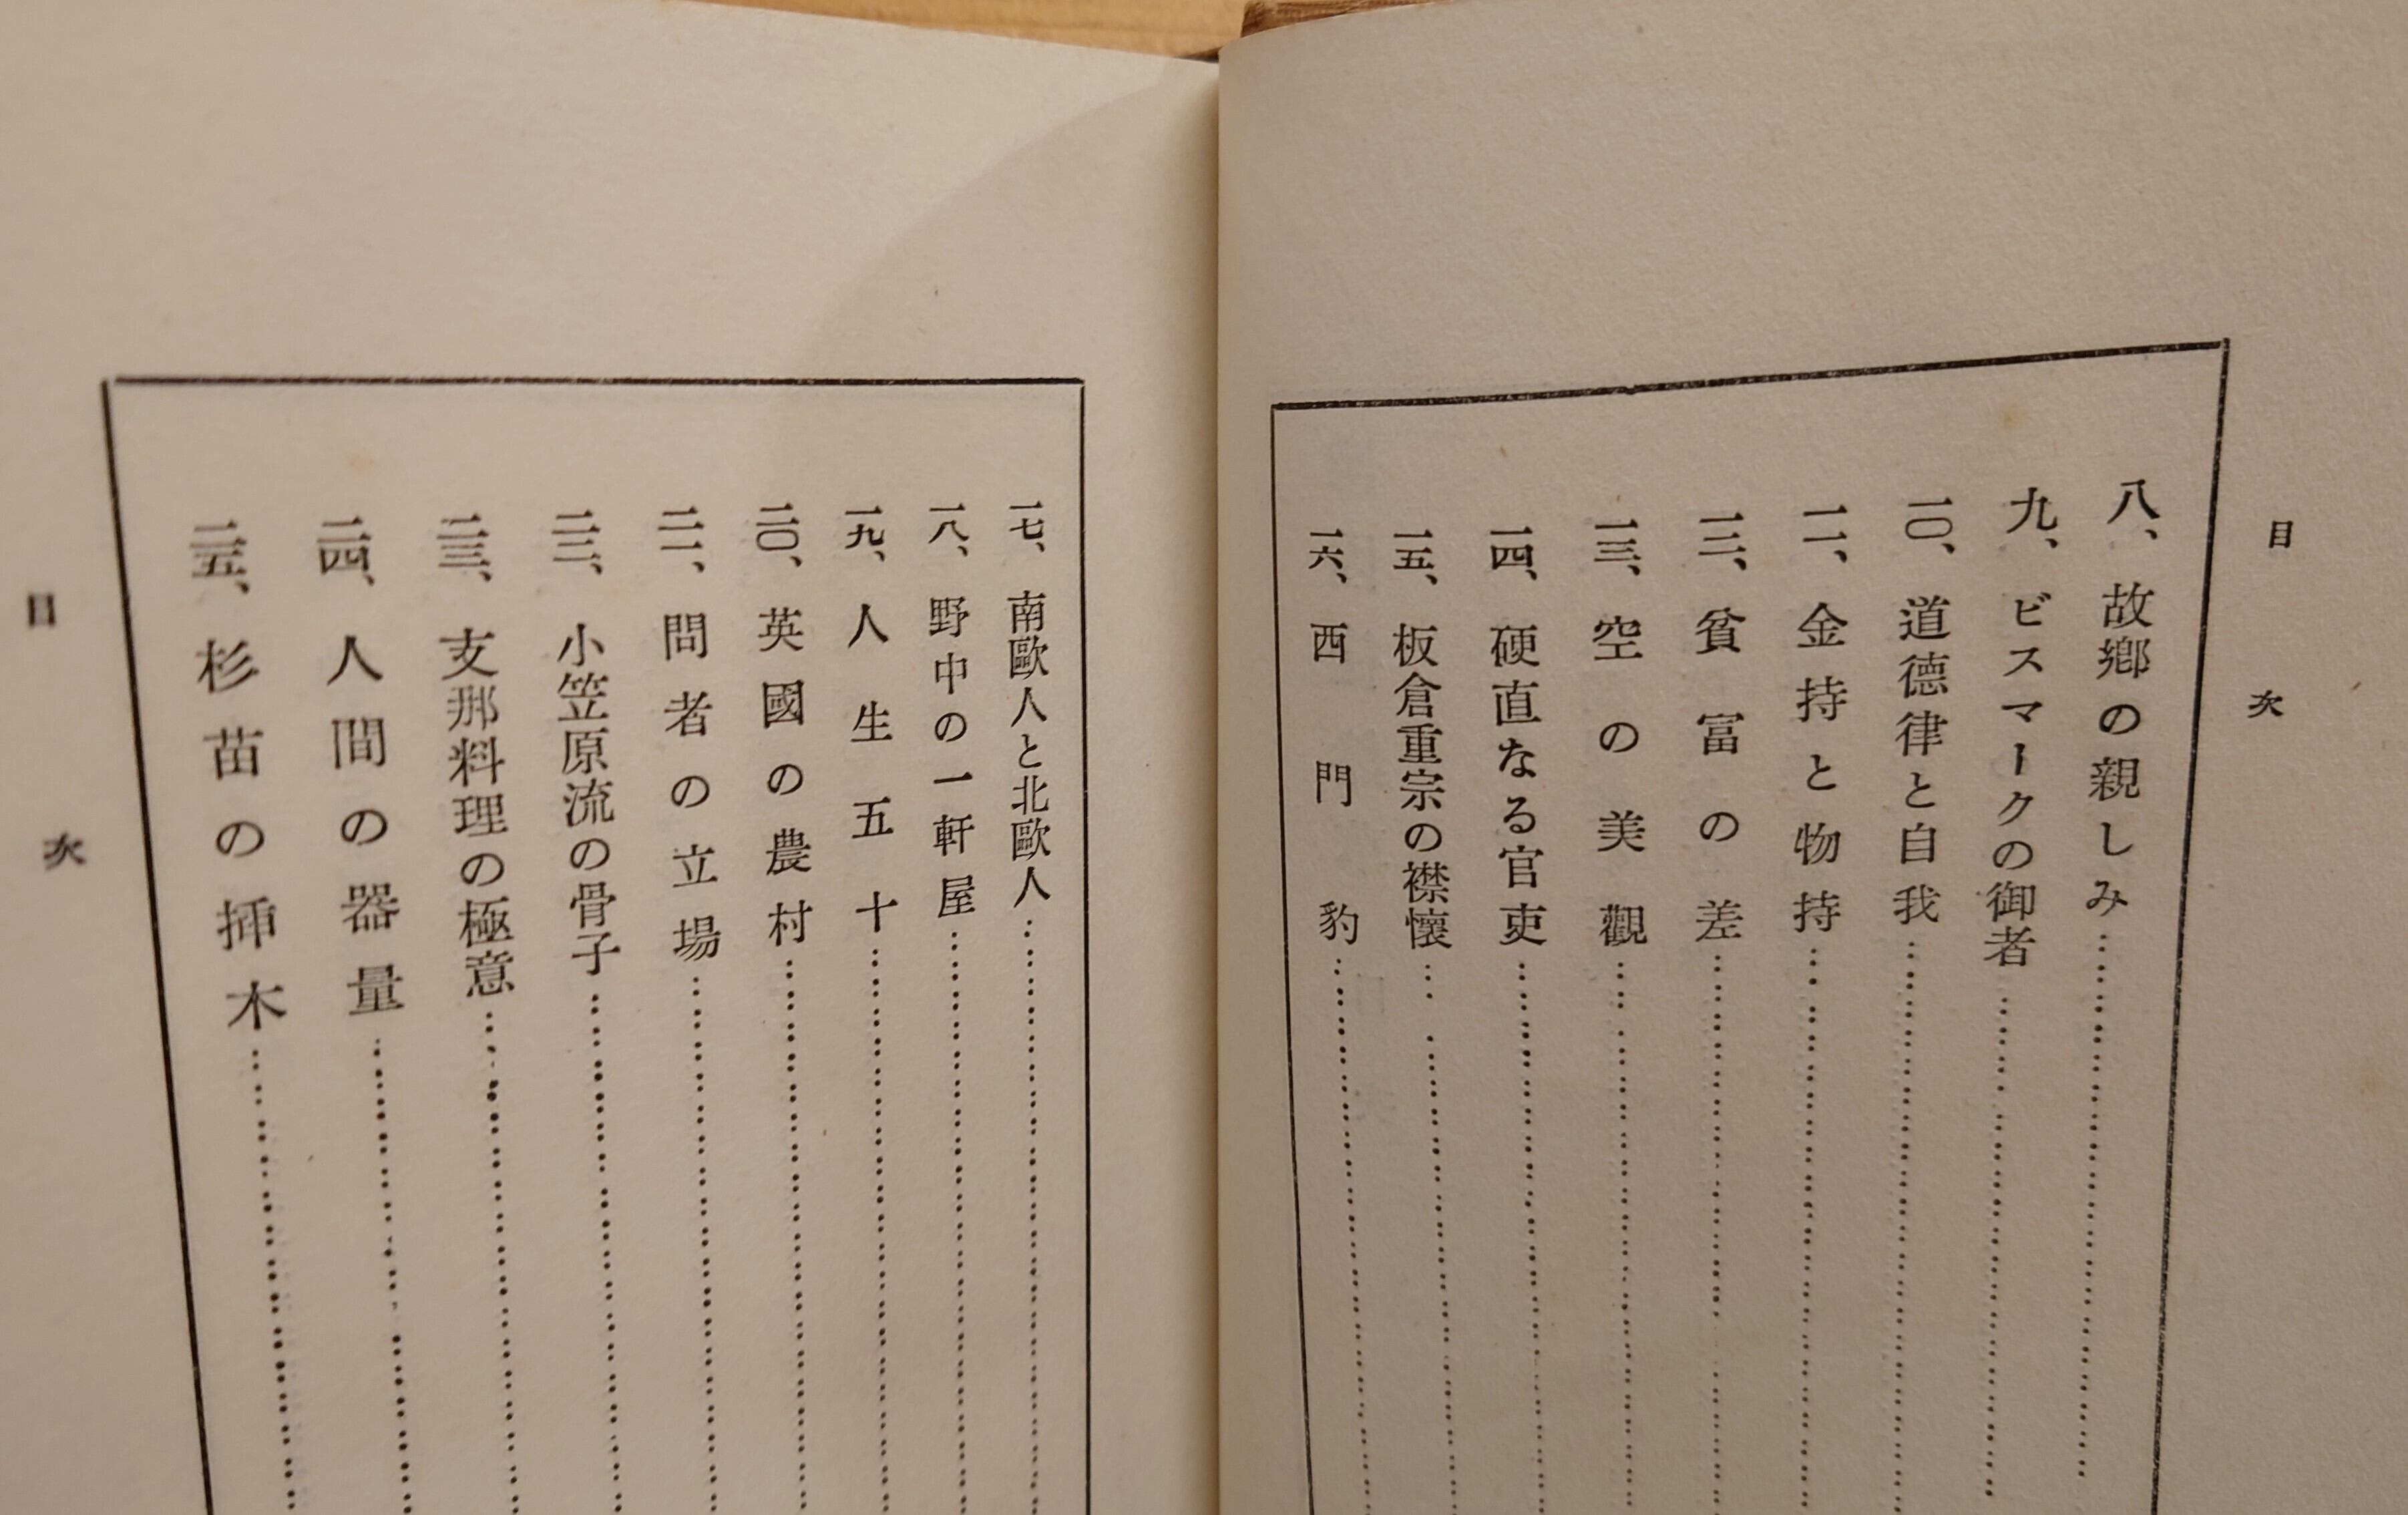 目次
八、故鄕の親しみ
九、ビスマークの御者
一〇、道德律と自我
一一、金持と物持
一二、貧富の差
一三、空の美觀
一四、硬直なる官吏
一五、板倉重宗の襟懷
一六、西門豹
一七、南歐人と北歐人
一八、野中の一軒屋
一九、人生五十
二〇、英國の農村
二一、問者の立場
二二、小笠原流の骨子
二三、支那料理の極意
二四、人間の器量
二五、杉苗の揷木
目次